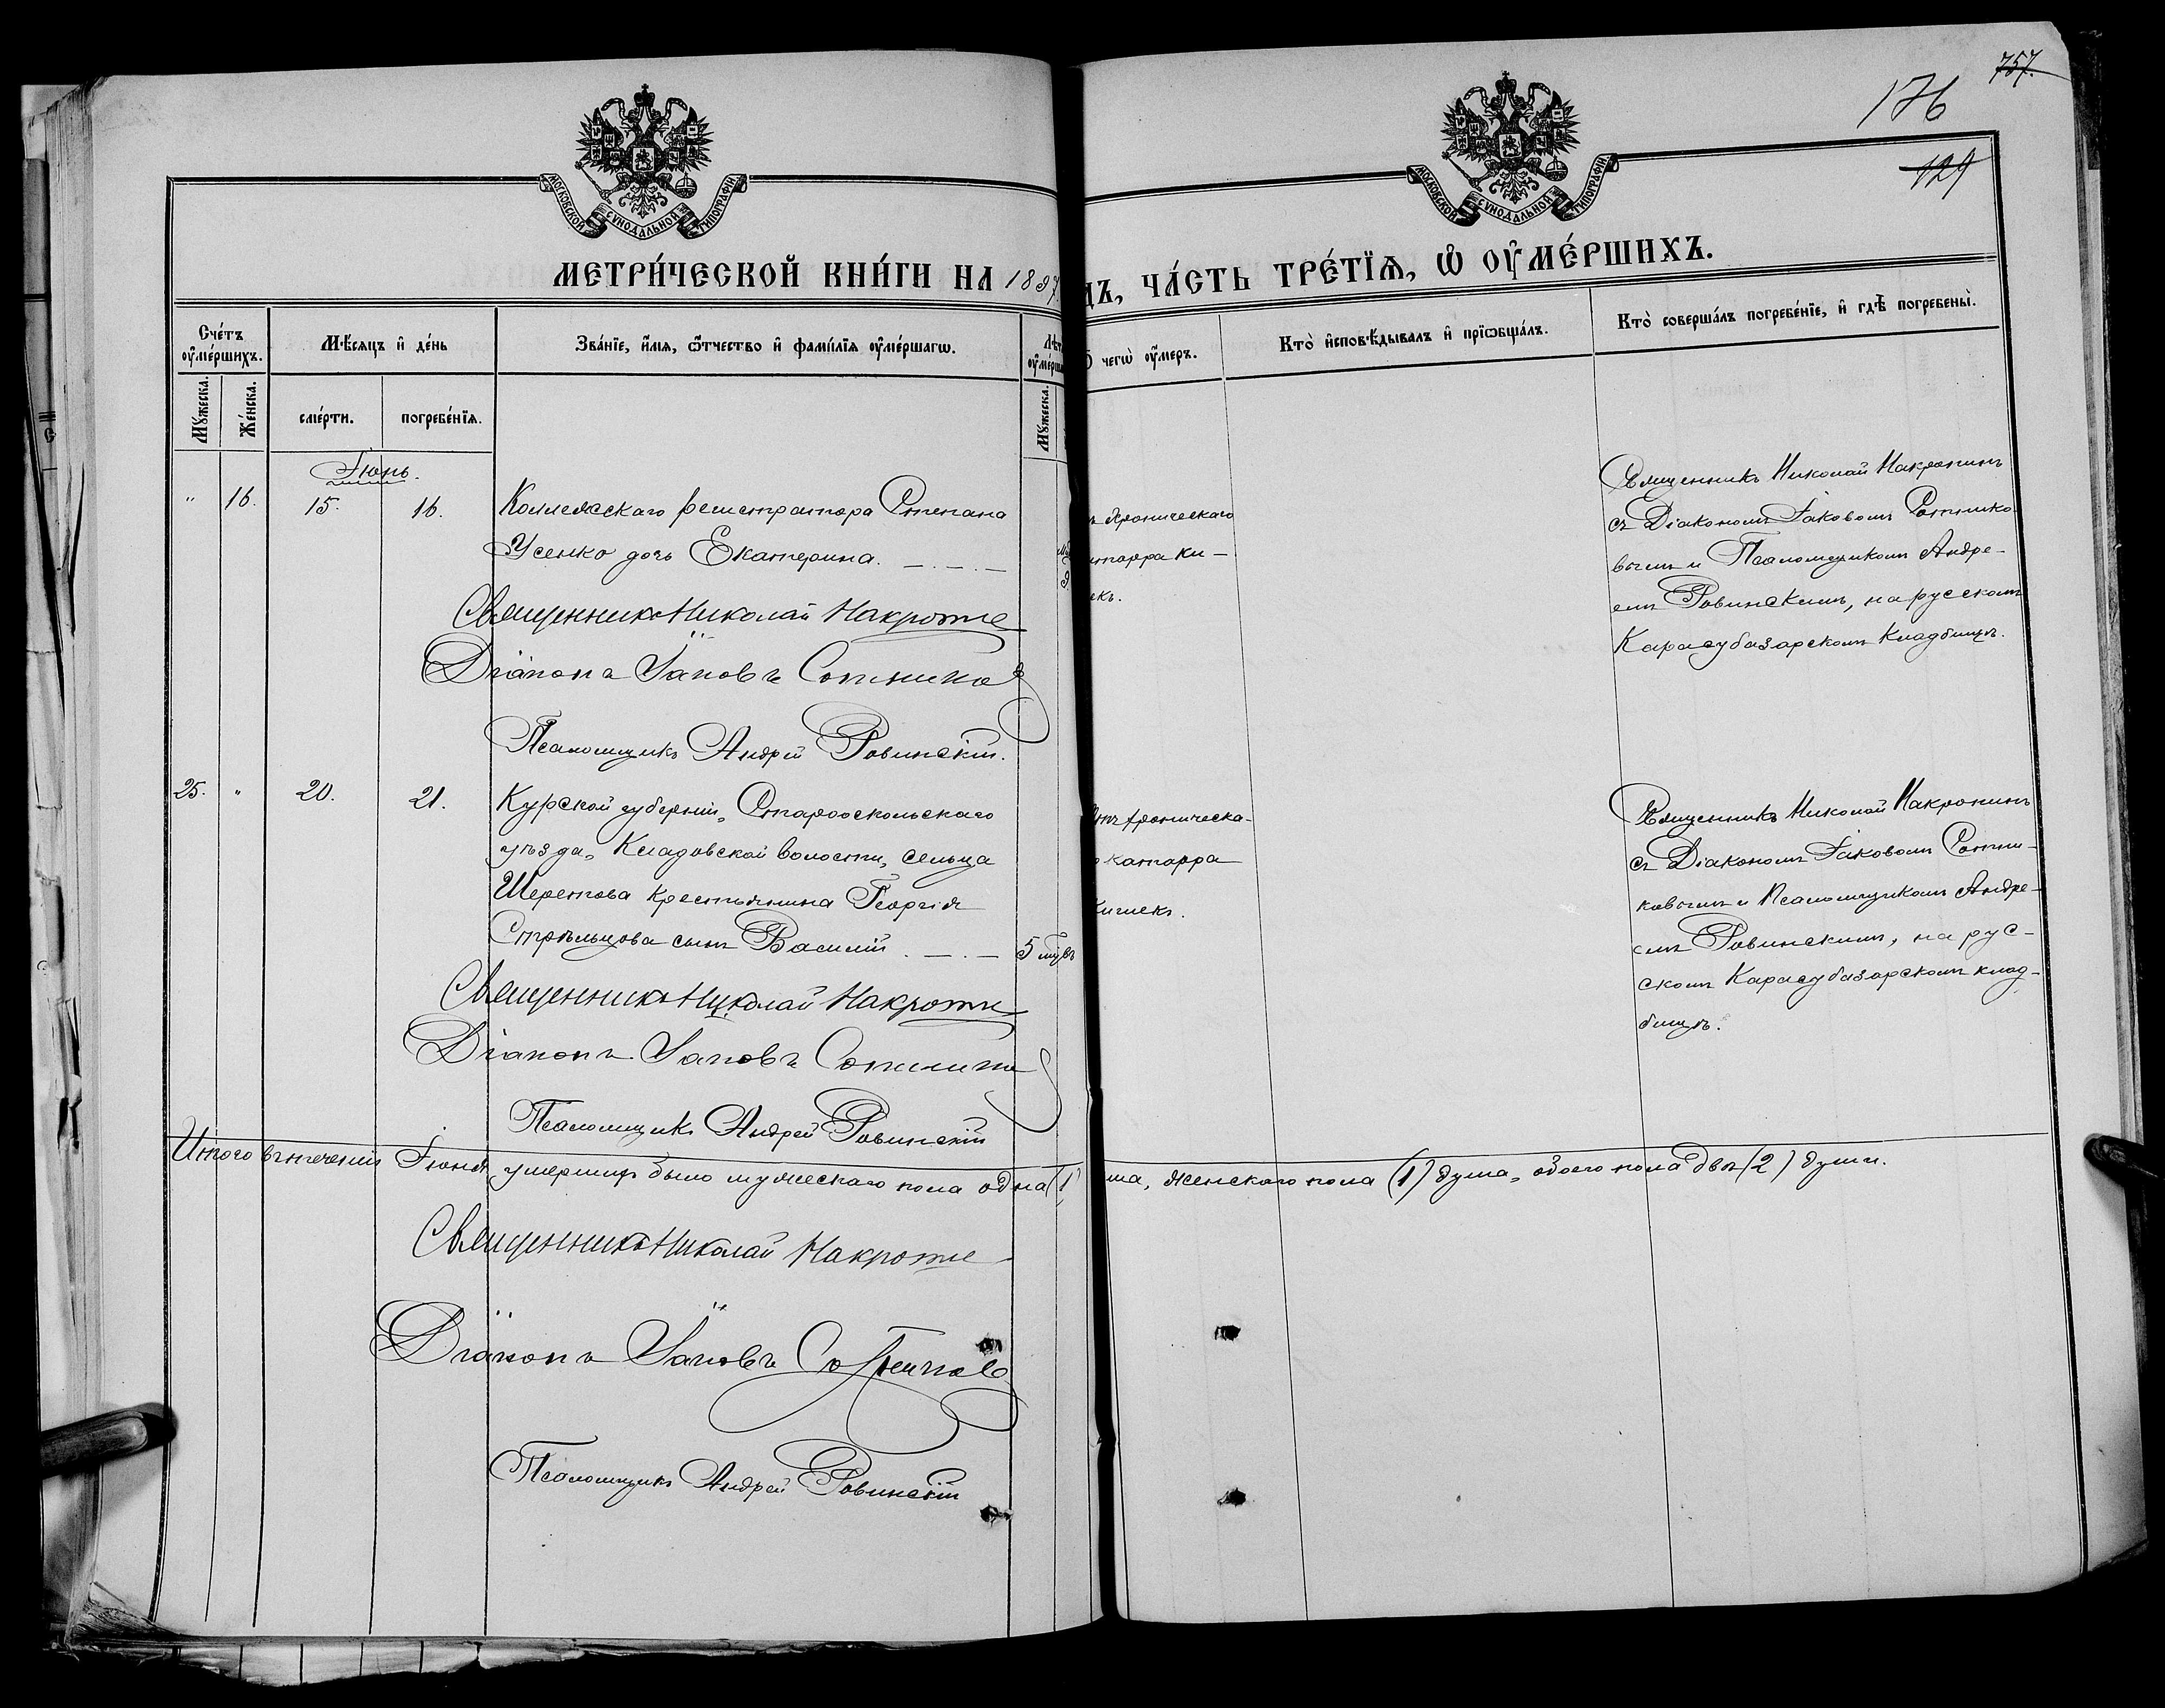 757.
176
129
МОСКОВСКОЙ СУНОДАЛЬНОЙ ТИПОГРАФІИ
МОСКОВСКОЙ СУНОДАЛЬНОЙ ТИПОГРАФІИ
МЕТРИ́ЧЕСКОЙ КНИ́ГИ НА 1897
ДЪ, ЧА́СТЬ ТРЕ́ТЇѦ, Ѡ ОУМЕ́РШИХЪ.
Сче́тъ оуме́ршихъ.
Мѣ́сяцъ и де́нь
Зва́нїе, и́мѧ, ѻ҆́тчество и фами́лїѧ оуме́ршагѡ.
чегѡ̀ оу́меръ.
Кто̀ и҆сповѣ́дывалъ и прїѡбща́лъ.
Кто̀ соверша́лъ погребе́нїе, и гдѣ̀ погребены̀.
Мꙋ́жеска.
Же́нска.
сме́рти.
погребе́нїѧ.
Мꙋ́жеска.
Іюнь.
" 16. 15. 16. Коллежскаго регистратора Степана
Усенко дочь Екатерина.
Священникъ Николай Накропи
Діаконъ Іаковъ Сотников
Псаломщикъ Андрей Ровинскій.
хроническаго
тарра ки-
екъ.
Священникъ Николай Накропинъ
съ Діакономъ Іаковомъ Сотнико
вымъ и Псаломщикомъ Андре-
емъ Ровинскимъ, на русскомъ
Карасубазарскомъ кладбищѣ.
25. " 20. 21. Курской губерніи, Старооскольскаго
уѣзда, Кладовской волости, сельца
Шеретова крестьянина Георгія
Стрѣльцова сынъ Василій 5 мцвъ
Священникъ Николай Накропи
Діаконъ Іаковъ Сотнико
Псаломщикъ Андрей Ровинскій
хроническа-
катарра
кишекъ.
Священникъ Николай Накропинъ
съ Діакономъ Іаковомъ Сотни-
ковымъ и Псаломщикомъ Андре-
емъ Ровинскимъ, на рус-
скомъ Карасубазарскомъ клад-
бищѣ.
Итого въ теченіи Іюня умершихъ было мужескаго пола одна (1) ша, женскаго пола (1) душа, обоего пола двѣ (2) души.
Священникъ Николай Накропи
Діаконъ Іаковъ Сотников
Псаломщикъ Андрей Ровинскій